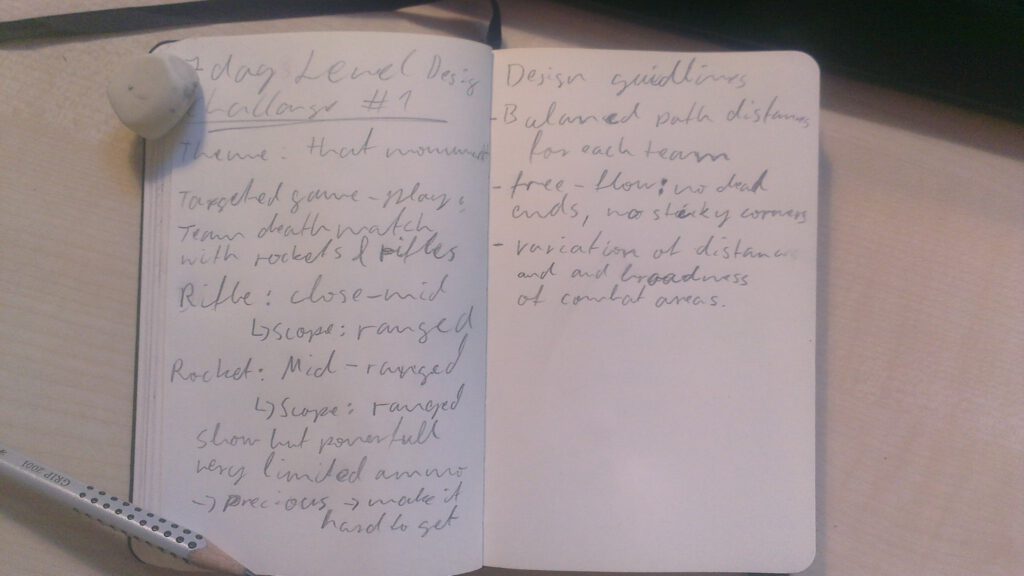 1 day Level Design
Challange #1
Theme: that monument
Targeted game-play:
Team death match
with rockets & rifles
Rifle: close-mid
↳ Scope: ranged
Rocket: Mid-ranged
↳ Scope: ranged
slow but powerfull
very limited ammo
→ precious → make it
hard to get
Design guidlines
- Balanced path distances
for each team
- free-flow: no dead
ends, no stinky corners
- variation of distances
and and broadness
of combat areas.
GRIP 2001